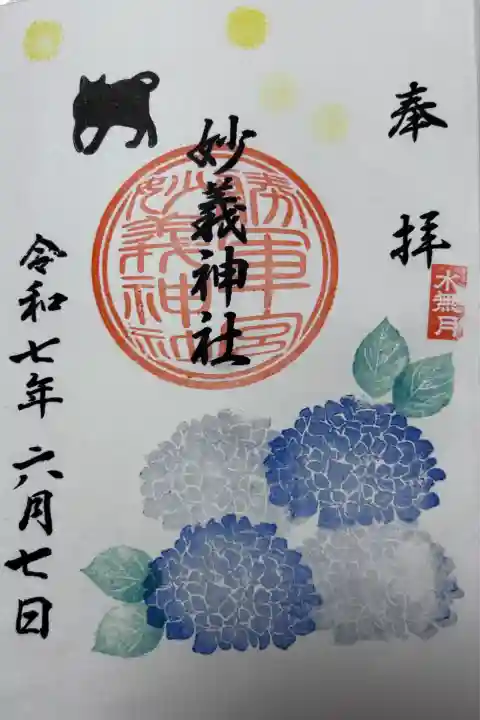 奉拝
水無月
妙義神社
勝軍宮
妙義神社
令和七年六月七日